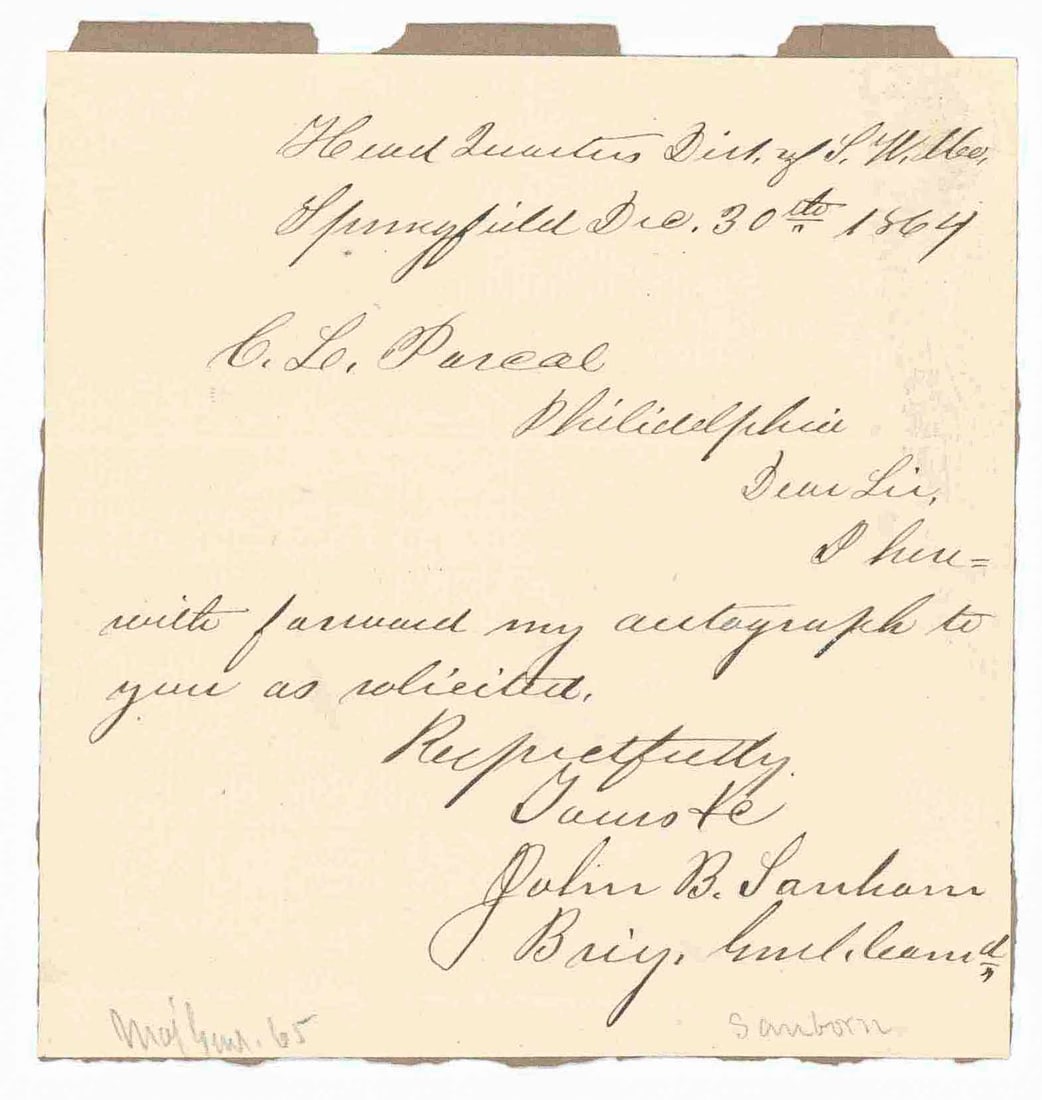 Head Quarters Dist. of S. W. Mo.
Springfield Dec. 30th 1864
C. L. Pascal
Philidelphia
Dear Sir,
I here=
with forward my autograph to
you as solicited.
Respectfully
Yours &c
John B. Sanborn
Brig. Genl. Comd
Maj Genl. 65
Sanborn